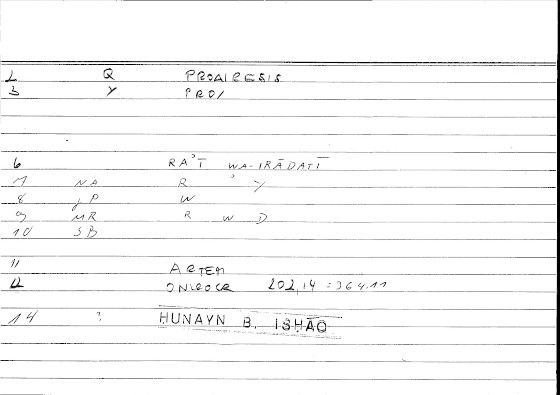 2 Q PROAIRESIS
3 Y PROI
6 RA'Ī WA-IRĀDATĪ
7 NA R ' Y
8 JP W
9 MR R W D
10 SB
11 ARTEM
12 ONIROCR 202,14 = 364.11
14 ? HUNAYN B. ISḤĀQ